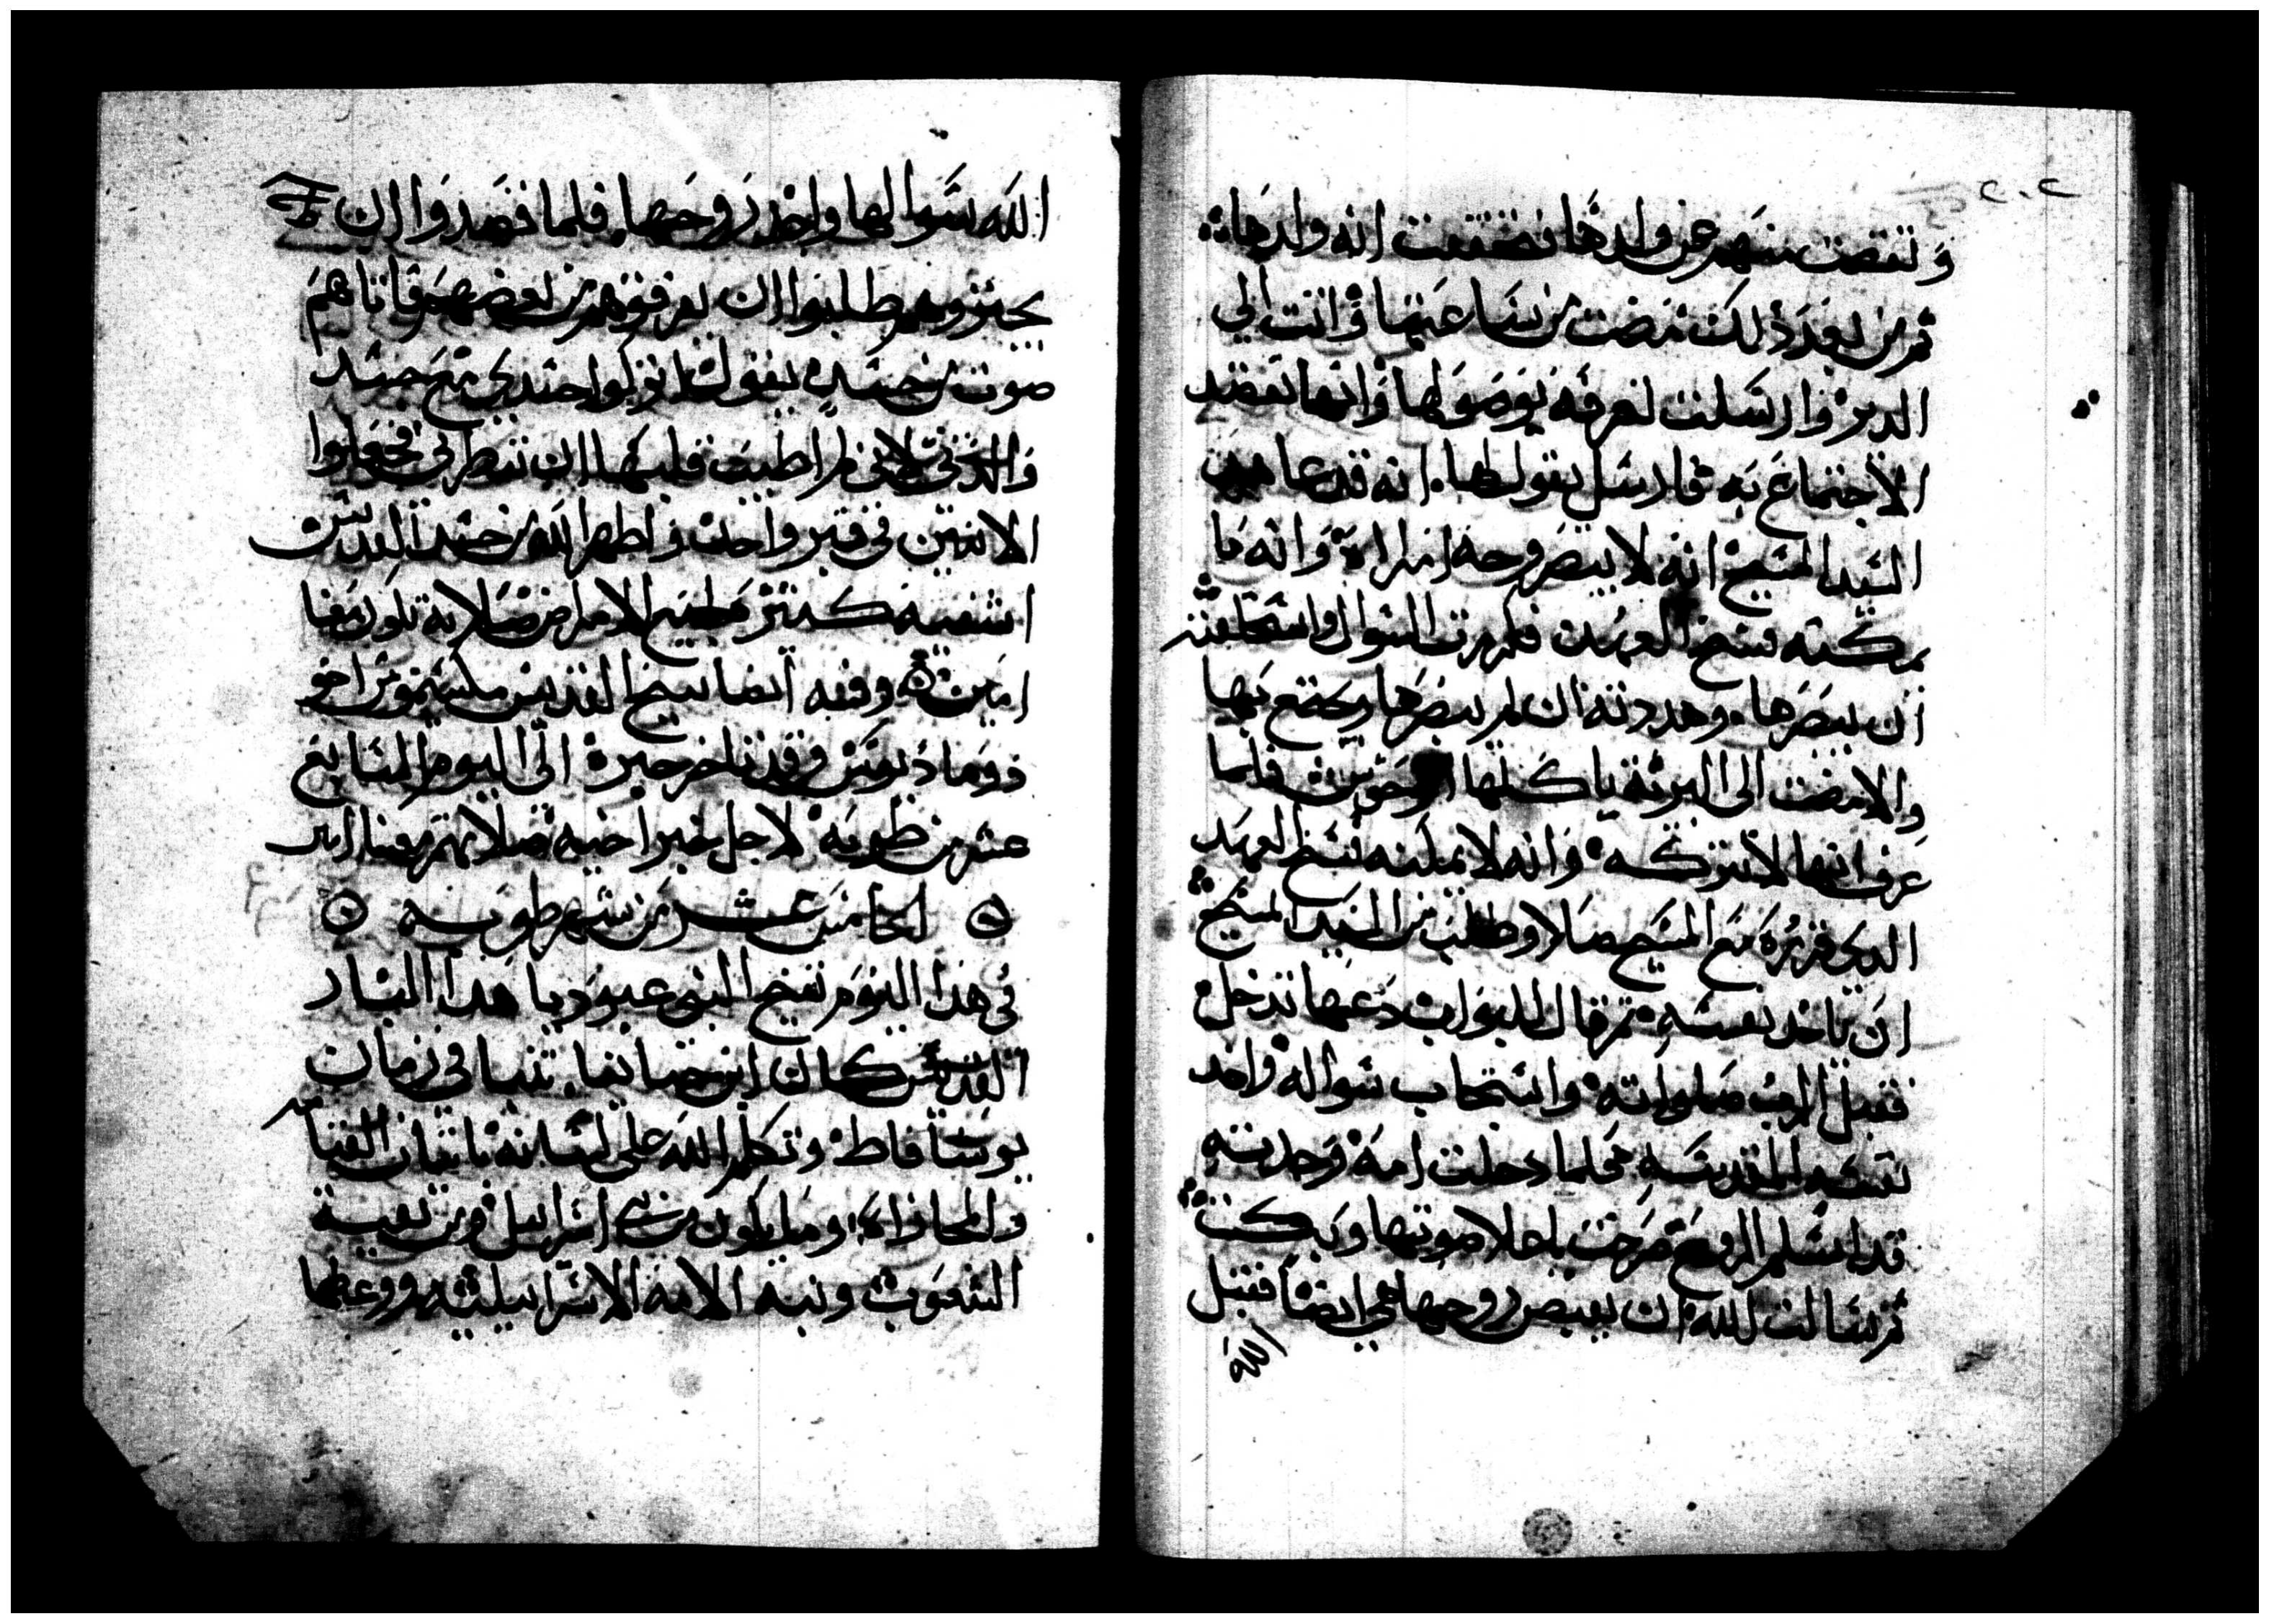 ٢٠٢
وتقصت منهم عن ولدها فتحققت انه ولدها
ثم من بعد ذلك نهضت من ساعتها واتت الي
الدير وارسلت تعرفه بوصولها وانها تقصد
الاجتماع به فارسل يقول لها انه قد عاهد
السيد المسيح انه لا يبصر وجه امراة وانه ما
يمكنه فسخ العهد فكررت السوال واستحلفته
ان يبصرها وهددته ان لم يبصرها ويجتمع بها
والا مضت الى البرية ياكلها الوحوش فلما
عرف انها لا تتركه وانه لا يمكنه فسخ العهد
الدي قرره مع المسيح صلا وطلب من السيد المسيح
ان ياخد نفسه ثم قال للبواب دعها تدخل
فقبل الرب صلواته واستجاب سواله واخد
نفسه القديسه فلما دخلت امه وجدته
قد اسلم الروح صرخت باعلا صوتها وبكت
ثم سالت الله ان يقبض روحها هي ايضا فقبل
الله
الله سوالها واخد روحها فلما قصدوا ان
يجنزوهم طلبوا ان يفرقوهم من بعضهم فاتاهم
صوت من جسده يقول اتركوا جسدي مع جسد
والدتي لاني لم اطيب قلبها ان تنظرني فجعلوا
الاتنين في قبر واحد واظهر الله من جسد القديس
اشفيه كتير لجميع الامراض صلاته تكون معنا
امين وفيه ايضا تنيح القديس مكسيموس اخو
دوماديوس وقد تاخر خبره الى اليوم السابع
عشر من طوبه لاجل خبر اخيه صلاتهم معنا امين
الخامس عشر من شهر طوبه
في هدا اليوم تنيح النبي عبوديا هدا البار
القديس كان ابن حنانيا تنبا في زمان
يوشافاط وتكلم الله على لسانه باتيان القيامه
والمجازاه وما يكون من بني اسراييل ومن بقية
الشعوب ونبه الامه الاسراييلية ووعظها